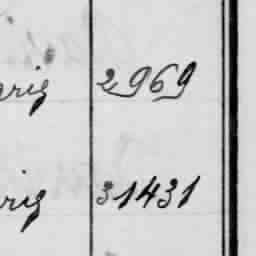 rig 2969
rig 31431